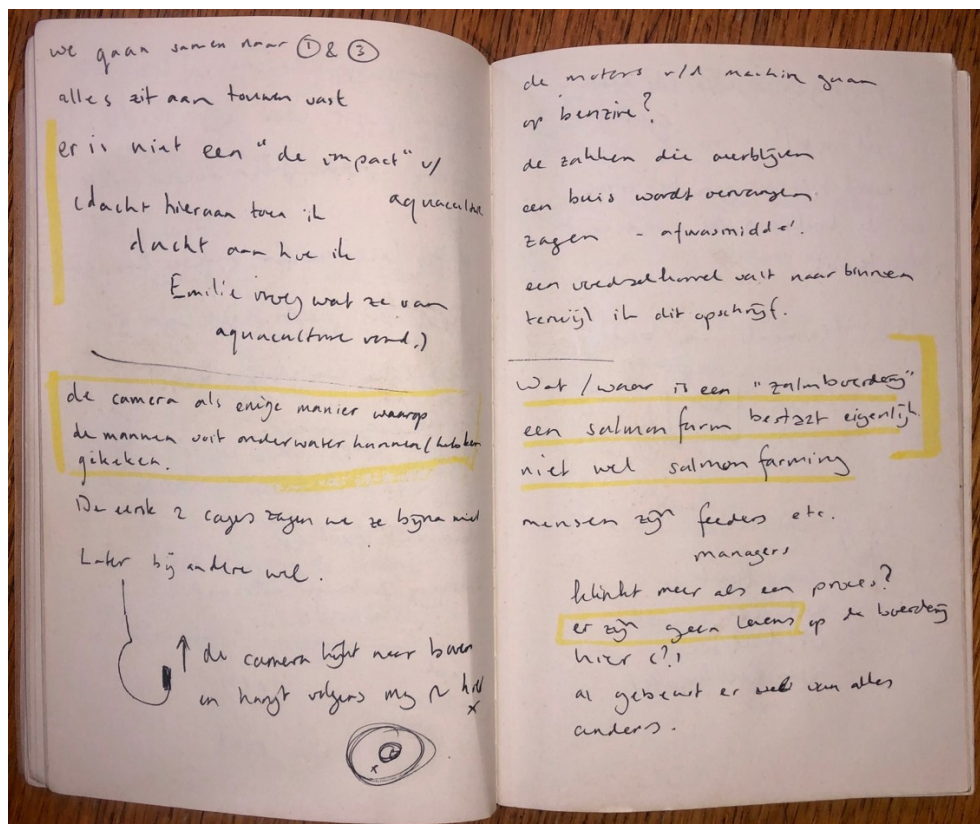 we gaan samen naar ① & ③
alles zit aan touwen vast
er is niet een "de impact" v/
aquaculture
(dacht hieraan toen ik
dacht aan hoe ik
Emilie vroeg wat ze van
aquaculture vond.)
de camera als enige manier waarop
de mannen ooit onderwater kunnen / hebben
gekeken.
De eerste 2 cages zagen we ze bijna niet
Later bij andere wel.
de camera kijkt naar boven
en hangt volgens mij hier
x
x
de motors v/d machine gaan
op benzine?
de zakken die overblijven
een buis wordt vervangen
zagen - afwasmiddel.
een voedselkorrel valt naar binnen
terwijl ik dit opschrijf.
Wat / waar is een "zalmboerderij"
een salmon farm bestaat eigenlijk
niet wel salmon farming
mensen zijn feeders etc.
managers
klinkt meer als een proces?
er zijn geen levens op de boerderij
hier (?)
al gebeurt er wel van alles
anders.